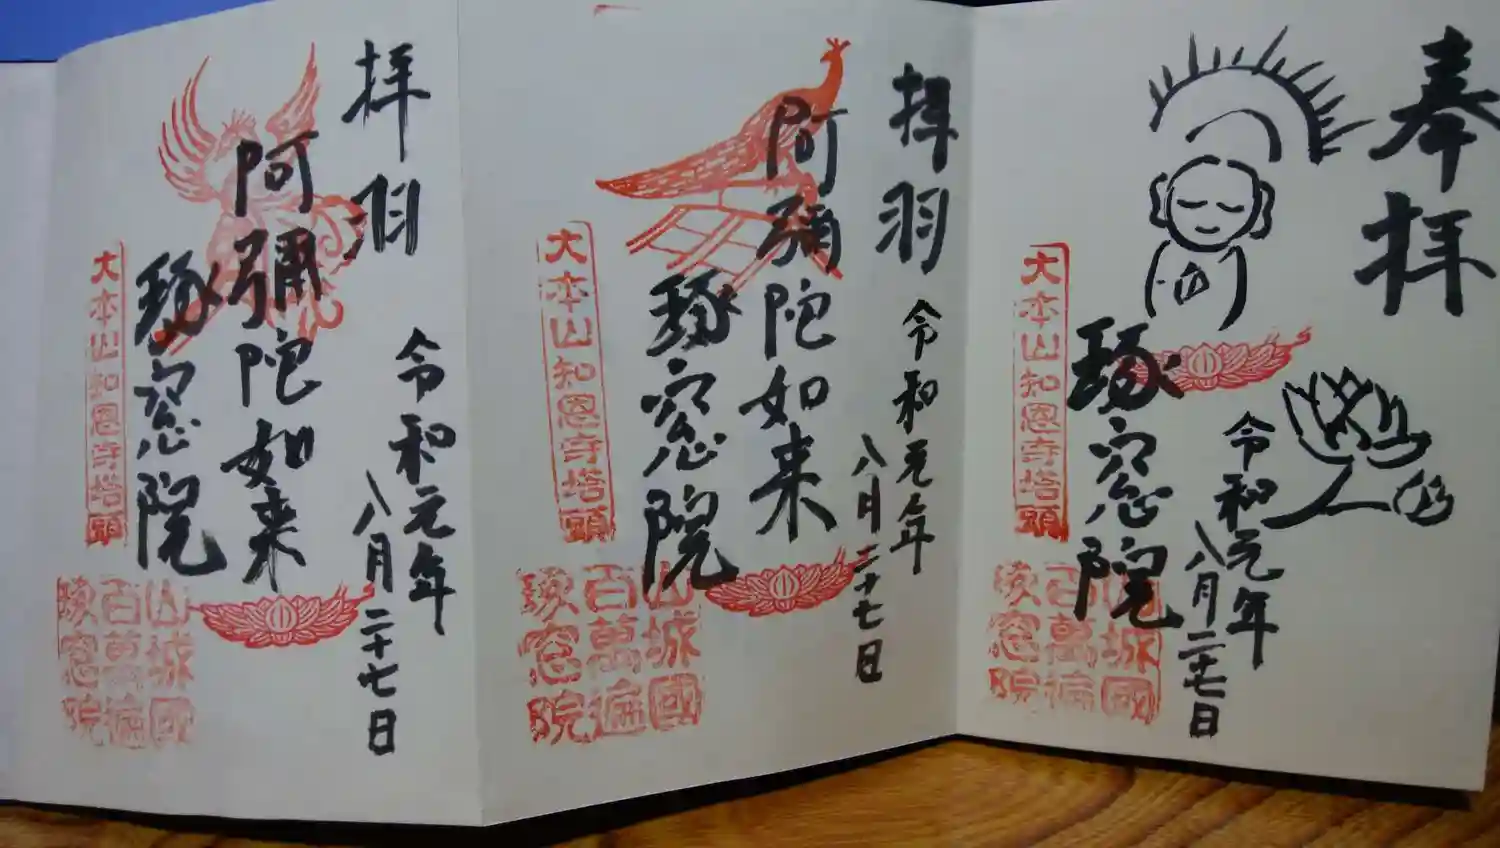 奉拝
令和元年
八月二十七日
琢窓院
大本山知恩寺塔頭
山城國
百萬遍
琢窓院
拝羽
令和元年
八月二十七日
阿彌陀如来
琢窓院
大本山知恩寺塔頭
山城國
百萬遍
琢窓院
拝羽
令和元年
八月二十七日
阿彌陀如来
琢窓院
大本山知恩寺塔頭
山城國
百萬遍
琢窓院